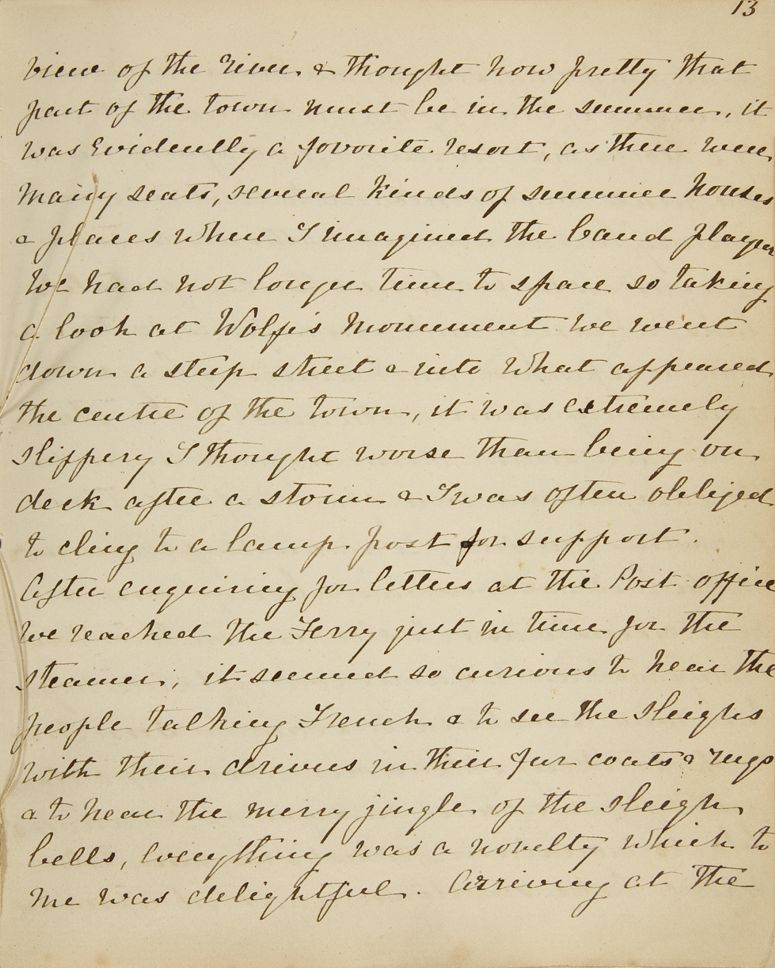 13
view of the river & thought how pretty that
part of the town must be in the summer, it
was evidently a favorite resort, as there were
many seats, several kinds of summer houses
& places where I imagined the band played
We had not longer time to spare so taking
a look at Wolfe's Monument we went
down a steep street & into what appeared
the centre of the town, it was extremely
slippery I thought worse than being on
deck after a storm & I was often obliged
to cling to a lamp post for support.
After enquiring for letters at the Post office
we reached the Ferry just in time for the
steamer, it seemed so curious to hear the
people talking French & to see the sleighs
with their drivers in their fur coats & rugs
& to hear the merry jingle of the sleigh
bells, everything was a novelty which to
me was delightful. Arriving at the